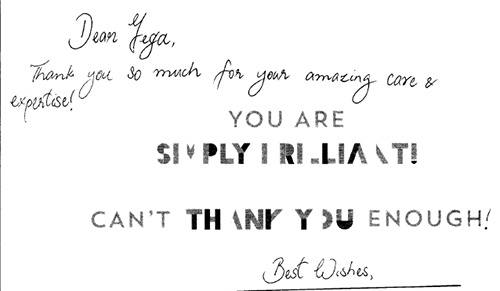 Dear Yega,
Thank you so much for your amazing care &
expertise!
YOU ARE
SIMPLY BRILLIANT!
CAN'T THANK YOU ENOUGH!
Best Wishes,